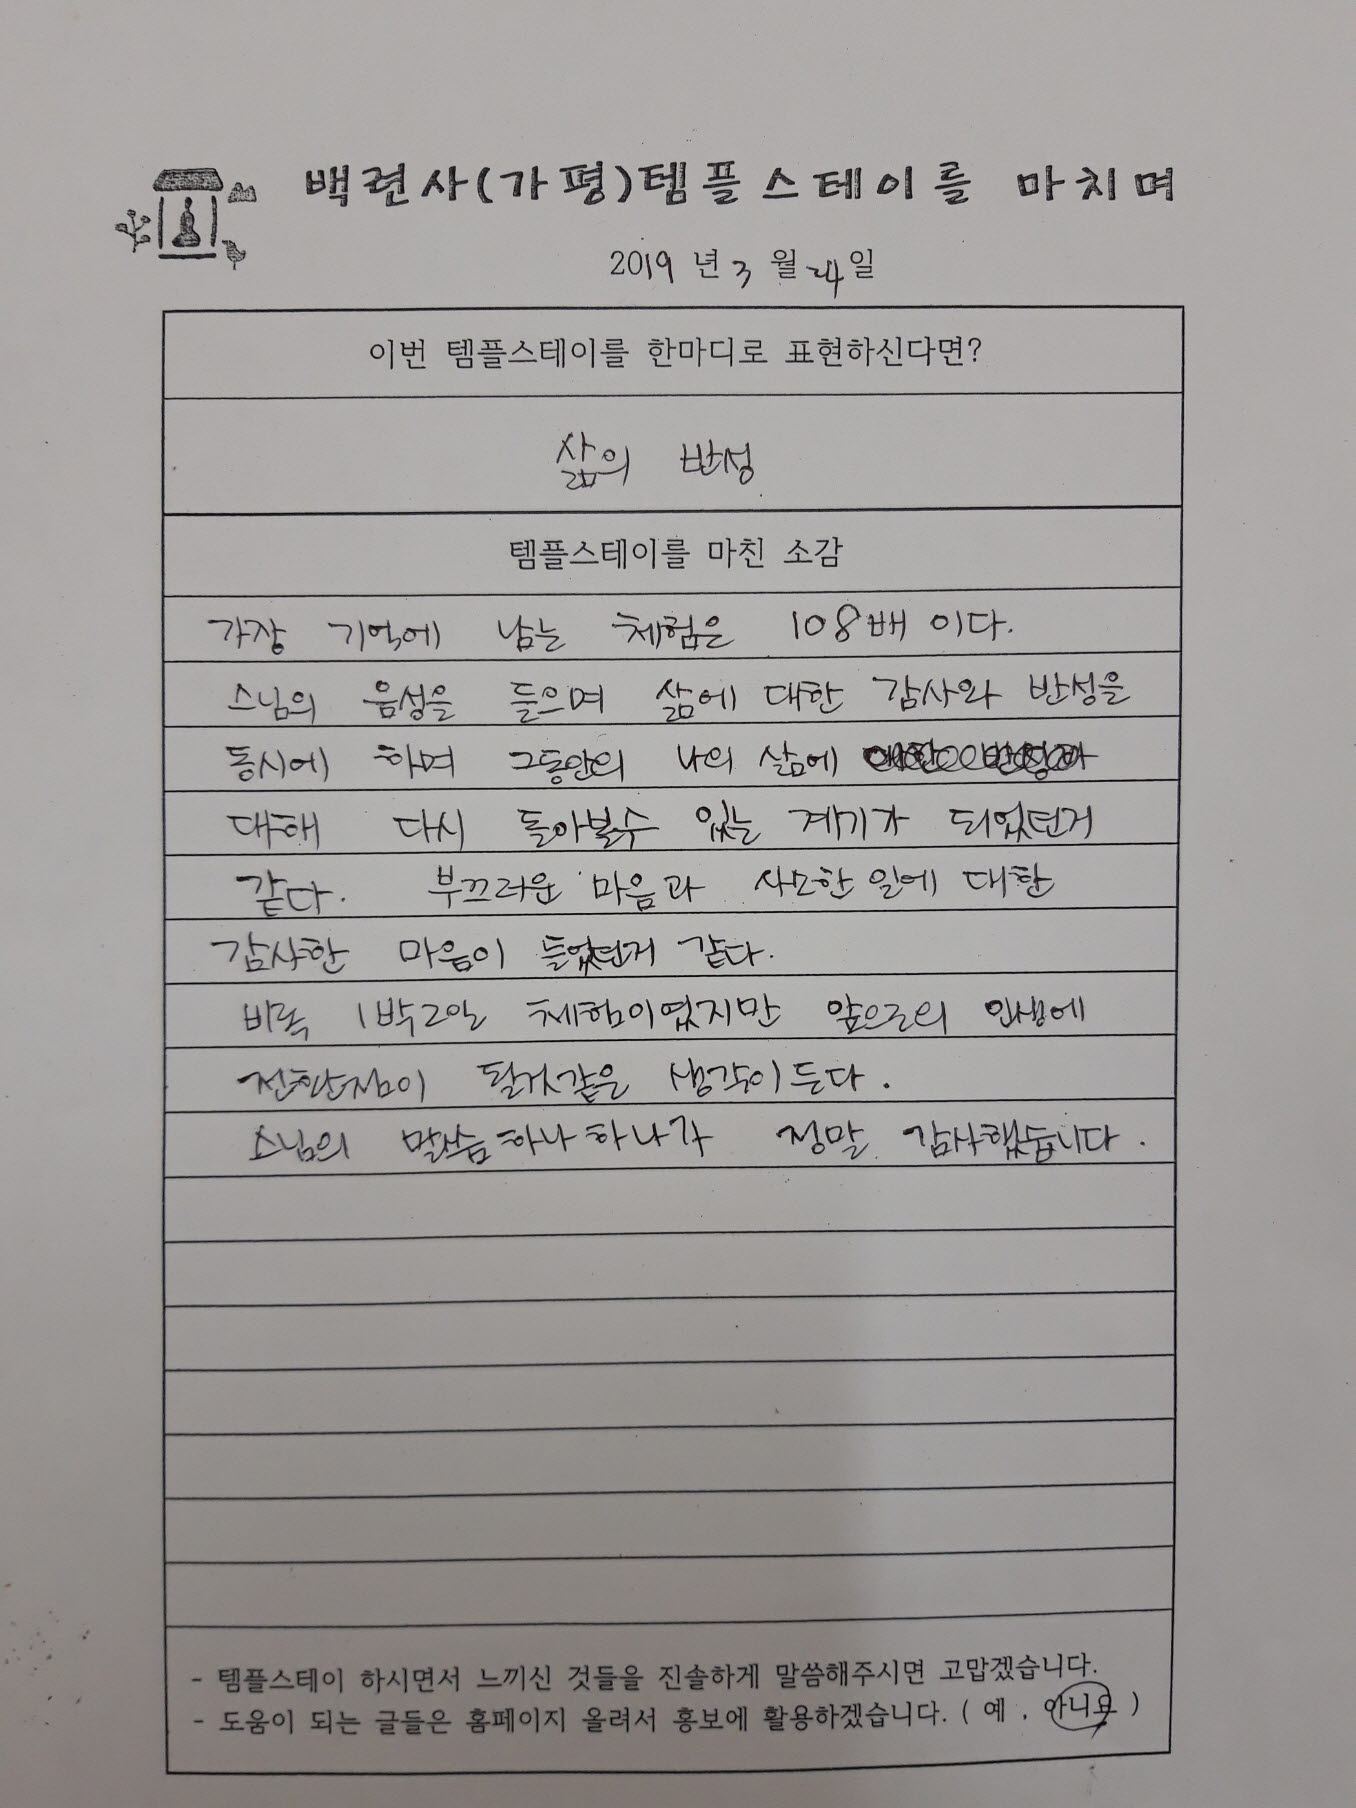 백련사(가평)템플스테이를 마치며
2019 년 3 월 24일
이번 템플스테이를 한마디로 표현하신다면?
삶의 반성
템플스테이를 마친 소감
가장 기억에 남는 체험은 108배 이다.
스님의 음성을 들으며 삶에 대한 감사와 반성을
동시에 하며 그동안의 나의 삶에
대해 다시 돌아볼수 있는 계기가 되었던거
같다. 부끄러운 마음과 사소한 일에 대한
감사한 마음이 들었던거 같다.
비록 1박2일 체험이였지만 앞으로의 인생에
전환점이 될거같은 생각이 든다.
스님의 말씀하나하나가 정말 감사했습니다.
- 템플스테이 하시면서 느끼신 것들을 진솔하게 말씀해주시면 고맙겠습니다.
- 도움이 되는 글들은 홈페이지 올려서 홍보에 활용하겠습니다. ( 예 , 아니요 )